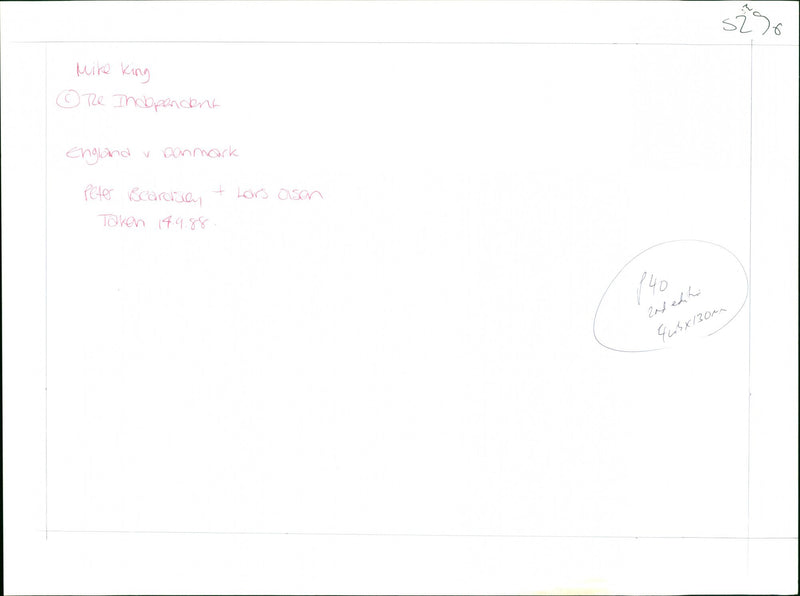 Mike King
© The Independent
England v Denmark
Peter Beardsley + Lars Olsen
Taken 14.9.88.
P40
2nd edition
4cols x 130mm